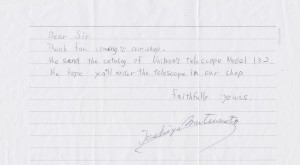 Dear Sir
Thank for coming to our shop.
We send the catalog of Vixon's Telescope Model 132
We hope you'll order the telescope in our shop
Faithfully yours.